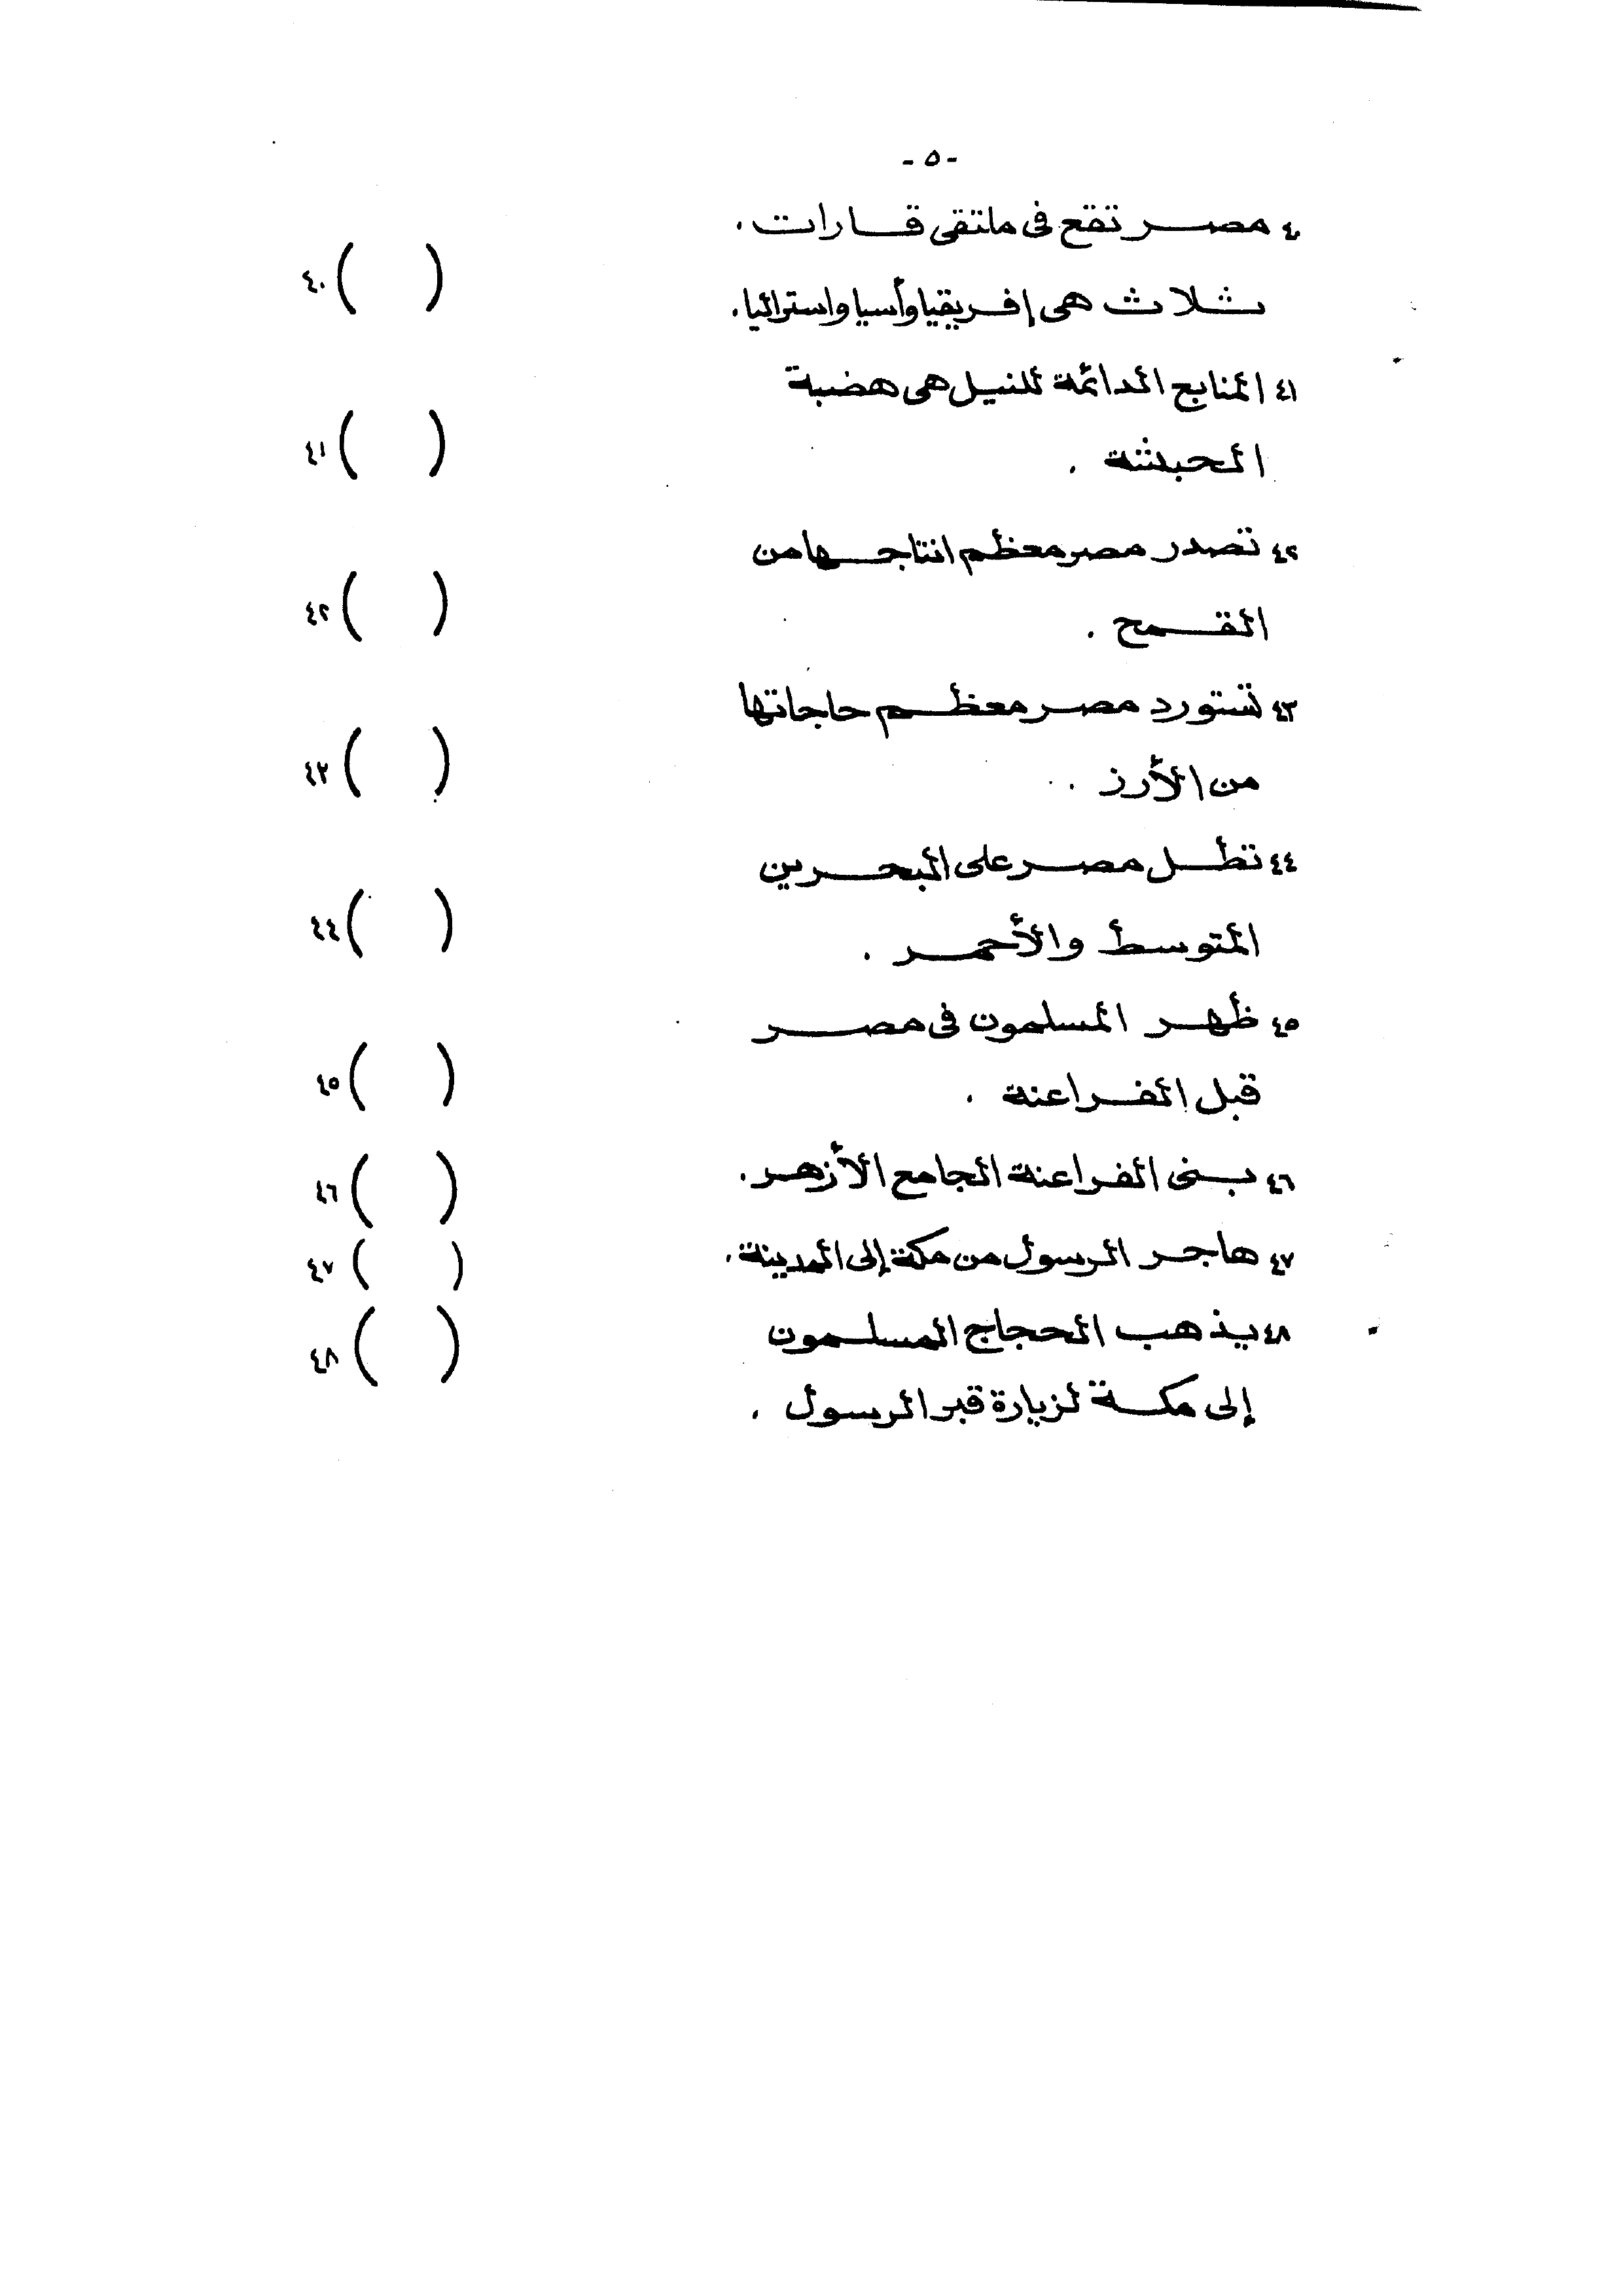 - ٥ -
٤٠ مصر تقع فى ملتقى قارات .
ثلاث هى إفريقيا وأسيا واستراليا .
( ) ٤٠
٤١ المنابع الدائمة للنيل هى هضبة
الحبشة .
( ) ٤١
٤٢ تصدر مصر معظم انتاجها من
القمح .
( ) ٤٢
٤٣ تستورد مصر معظم حاجاتها
من الأرز .
( ) ٤٣
٤٤ تطل مصر على البحرين
المتوسط والأحمر .
( ) ٤٤
٤٥ ظهر المسلمون فى مصر
قبل الفراعنة .
( ) ٤٥
٤٦ بنى الفراعنة الجامع الأزهر .
( ) ٤٦
٤٧ هاجر الرسول من مكة إلى المدينة .
( ) ٤٧
٤٨ يذهب الحجاج المسلمون
إلى مكة لزيارة قبر الرسول .
( ) ٤٨